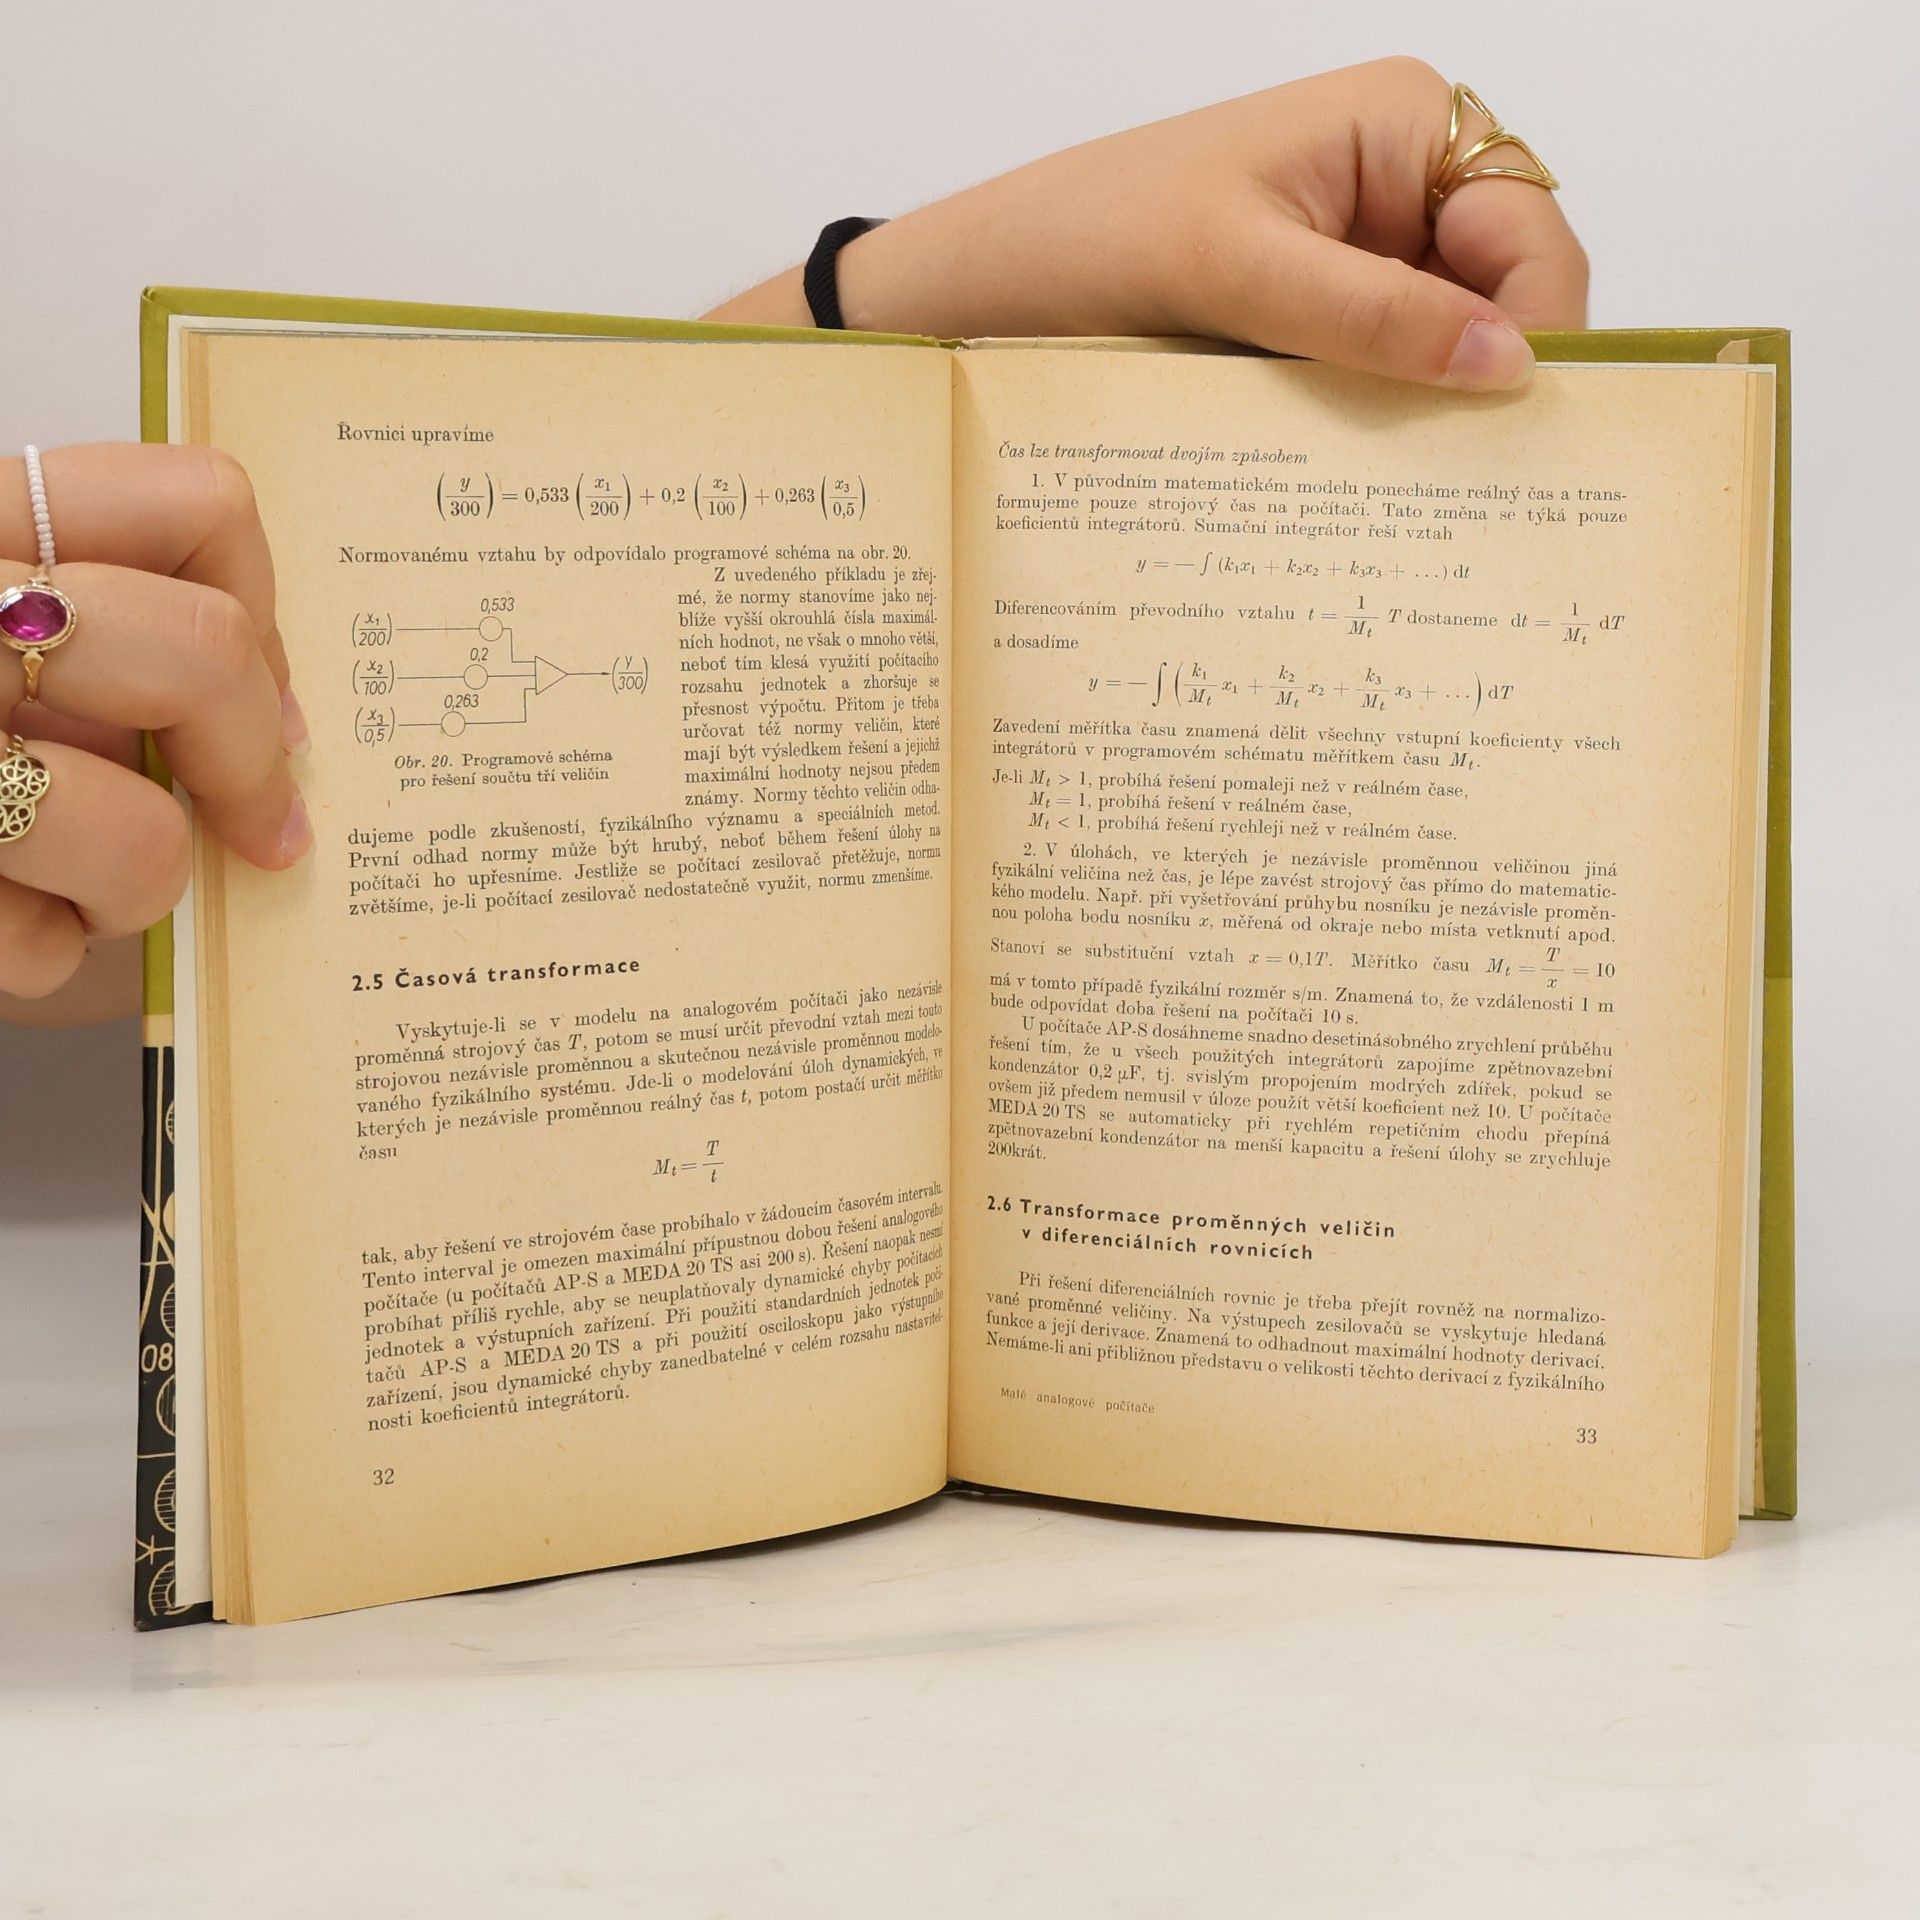 Rovnici upravíme
(y/300) = 0,533 (x₁/200) + 0,2 (x₂/100) + 0,263 (x₃/0,5)
Normovanému vztahu by odpovídalo programové schéma na obr. 20.
(x₁/200) 0,533
(x₂/100) 0,2 (y/300)
(x₃/0,5) 0,263
Obr. 20. Programové schéma
pro řešení součtu tří veličin
Z uvedeného příkladu je zřej-
mé, že normy stanovíme jako nej-
blíže vyšší okrouhlá čísla maximál-
ních hodnot, ne však o mnoho větší,
neboť tím klesá využití počítacího
rozsahu jednotek a zhoršuje se
přesnost výpočtu. Přitom je třeba
určovat též normy veličin, které
mají být výsledkem řešení a jejichž
maximální hodnoty nejsou předem
známy. Normy těchto veličin odha-
dujeme podle zkušeností, fyzikálního významu a speciálních metod.
První odhad normy může být hrubý, neboť během řešení úlohy na
počítači ho upřesníme. Jestliže se počítací zesilovač přetěžuje, normu
zvětšíme, je-li počítací zesilovač nedostatečně využit, normu zmenšíme.
2.5 Časová transformace
Vyskytuje-li se v modelu na analogovém počítači jako nezávisle
proměnná strojový čas T, potom se musí určit převodní vztah mezi touto
strojovou nezávisle proměnnou a skutečnou nezávisle proměnnou modelo-
vaného fyzikálního systému. Jde-li o modelování úloh dynamických, ve
kterých je nezávisle proměnnou reálný čas t, potom postačí určit měřítko
času
Mₜ = T/t
tak, aby řešení ve strojovém čase probíhalo v žádoucím časovém intervalu.
Tento interval je omezen maximální přípustnou dobou řešení analogového
počítače (u počítačů AP-S a MEDA 20 TS asi 200 s). Řešení naopak nesmí
probíhat příliš rychle, aby se neuplatňovaly dynamické chyby počítacích
jednotek a výstupních zařízení. Při použití standardních jednotek počí-
tačů AP-S a MEDA 20 TS a při použití osciloskopu jako výstupního
zařízení, jsou dynamické chyby zanedbatelné v celém rozsahu nastavitel-
nosti koeficientů integrátorů.
32
08
Čas lze transformovat dvojím způsobem
1. V původním matematickém modelu ponecháme reálný čas a trans-
formujeme pouze strojový čas na počítači. Tato změna se týká pouze
koeficientů integrátorů. Sumační integrátor řeší vztah
y = − ∫ (k₁x₁ + k₂x₂ + k₃x₃ + ...) dt
Diferencováním převodního vztahu t = 1/Mₜ T dostaneme dt = 1/Mₜ dT
a dosadíme
y = − ∫ (k₁/Mₜ x₁ + k₂/Mₜ x₂ + k₃/Mₜ x₃ + ...) dT
Zavedení měřítka času znamená dělit všechny vstupní koeficienty všech
integrátorů v programovém schématu měřítkem času Mₜ.
Je-li Mₜ > 1, probíhá řešení pomaleji než v reálném čase,
Mₜ = 1, probíhá řešení v reálném čase,
Mₜ < 1, probíhá řešení rychleji než v reálném čase.
2. V úlohách, ve kterých je nezávisle proměnnou veličinou jiná
fyzikální veličina než čas, je lépe zavést strojový čas přímo do matematic-
kého modelu. Např. při vyšetřování průhybu nosníku je nezávisle proměn-
nou poloha bodu nosníku x, měřená od okraje nebo místa vetknutí apod.
Stanoví se substituční vztah x = 0,1T. Měřítko času Mₜ = T/x = 10
má v tomto případě fyzikální rozměr s/m. Znamená to, že vzdálenosti 1 m
bude odpovídat doba řešení na počítači 10 s.
U počítače AP-S dosáhneme snadno desetinásobného zrychlení průběhu
řešení tím, že u všech použitých integrátorů zapojíme zpětnovazební
kondenzátor 0,2 μF, tj. svislým propojením modrých zdířek, pokud se
ovšem již předem nemusil v úloze použít větší koeficient než 10. U počítače
MEDA 20 TS se automaticky při rychlém repetičním chodu přepíná
zpětnovazební kondenzátor na menší kapacitu a řešení úlohy se zrychluje
200krát.
2.6 Transformace proměnných veličin
v diferenciálních rovnicích
Při řešení diferenciálních rovnic je třeba přejít rovněž na normalizo-
vané proměnné veličiny. Na výstupech zesilovačů se vyskytuje hledaná
funkce a její derivace. Znamená to odhadnout maximální hodnoty derivací.
Nemáme-li ani přibližnou představu o velikosti těchto derivací z fyzikálního
Malé analogové počítače
33